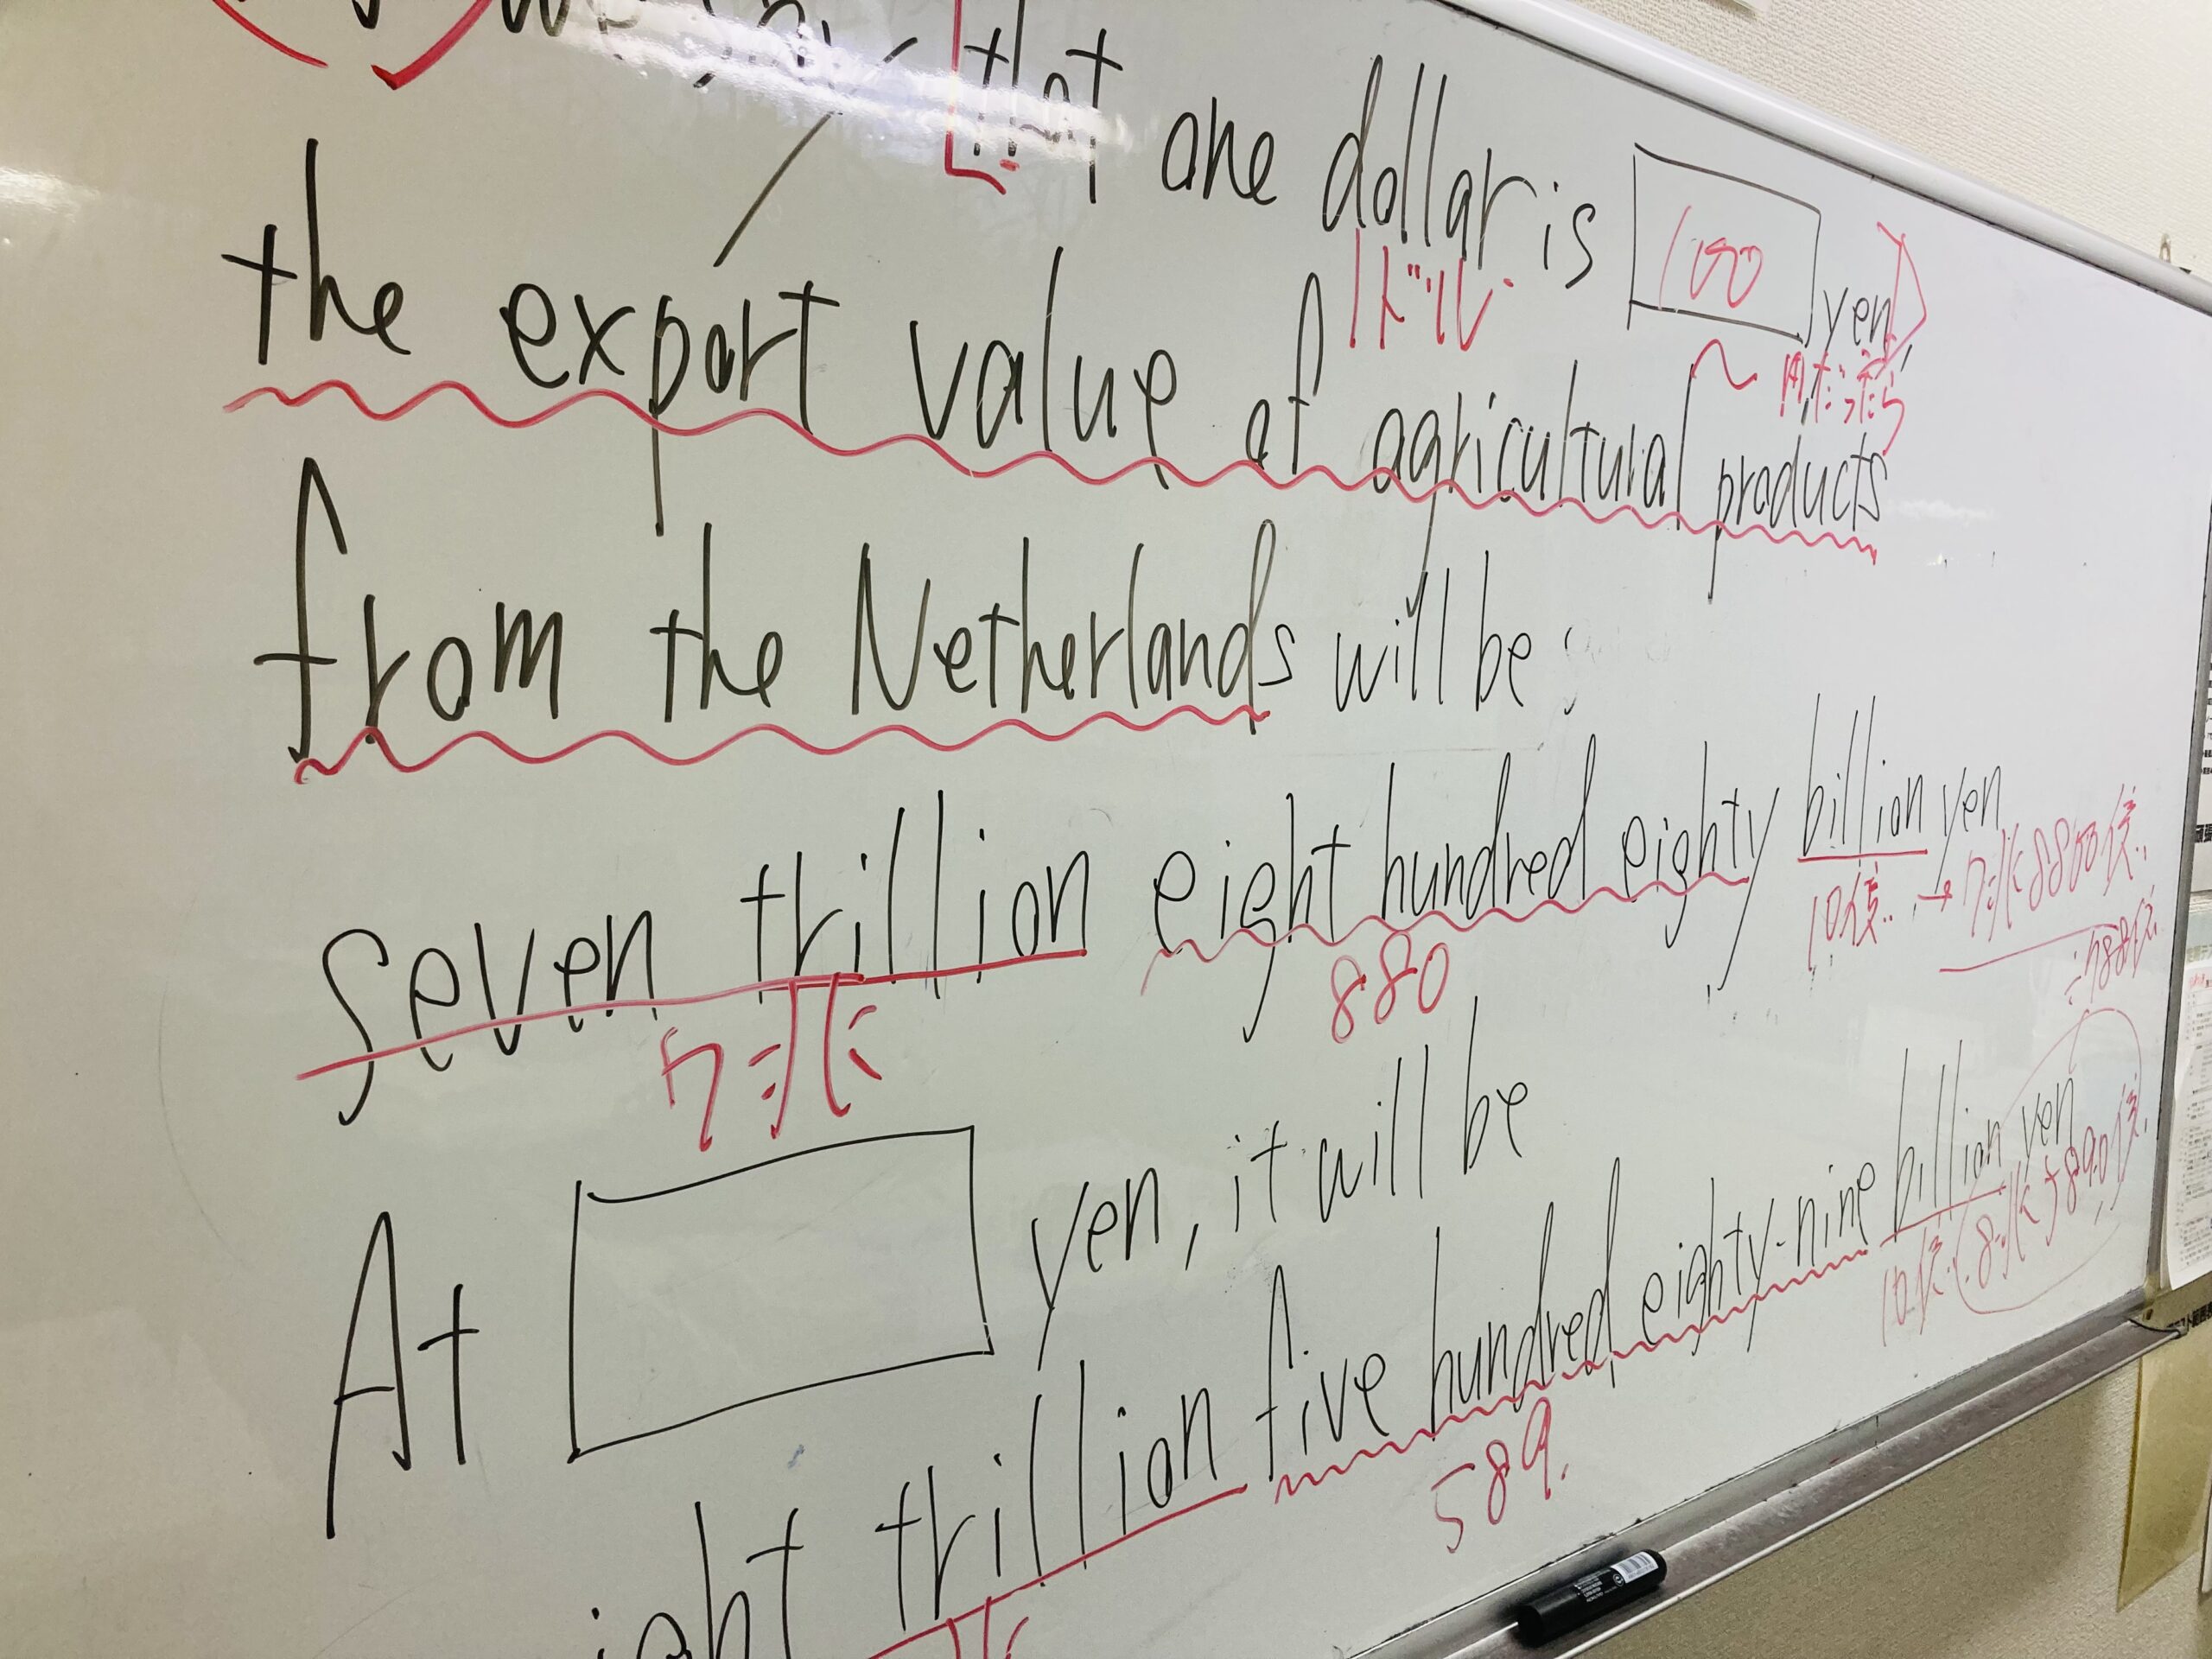 that one dollar is 100 yen,
1ドル 円だったら
the export value of agricultural products
from the Netherlands will be
seven trillion eight hundred eighty billion yen
7兆 880 10億 → 7兆8800億
At yen, it will be
ight trillion five hundred eighty-nine billion yen
兆 589 10億 8兆5890億